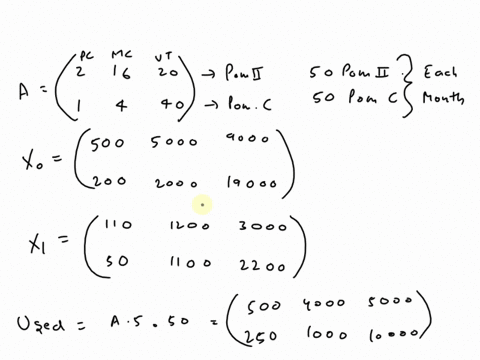 PC MC UT
A = ( 2 16 20 ) → Pom II 50 Pom II } Each
( 1 4 40 ) → Pom. C 50 Pom C } Month
X0 = ( 500 5000 9000 )
( 200 2000 19000 )
X1 = ( 110 1200 3000 )
( 50 1100 2200 )
Used = A.5.50 = ( 500 4000 5000 )
( 250 1000 10000 )